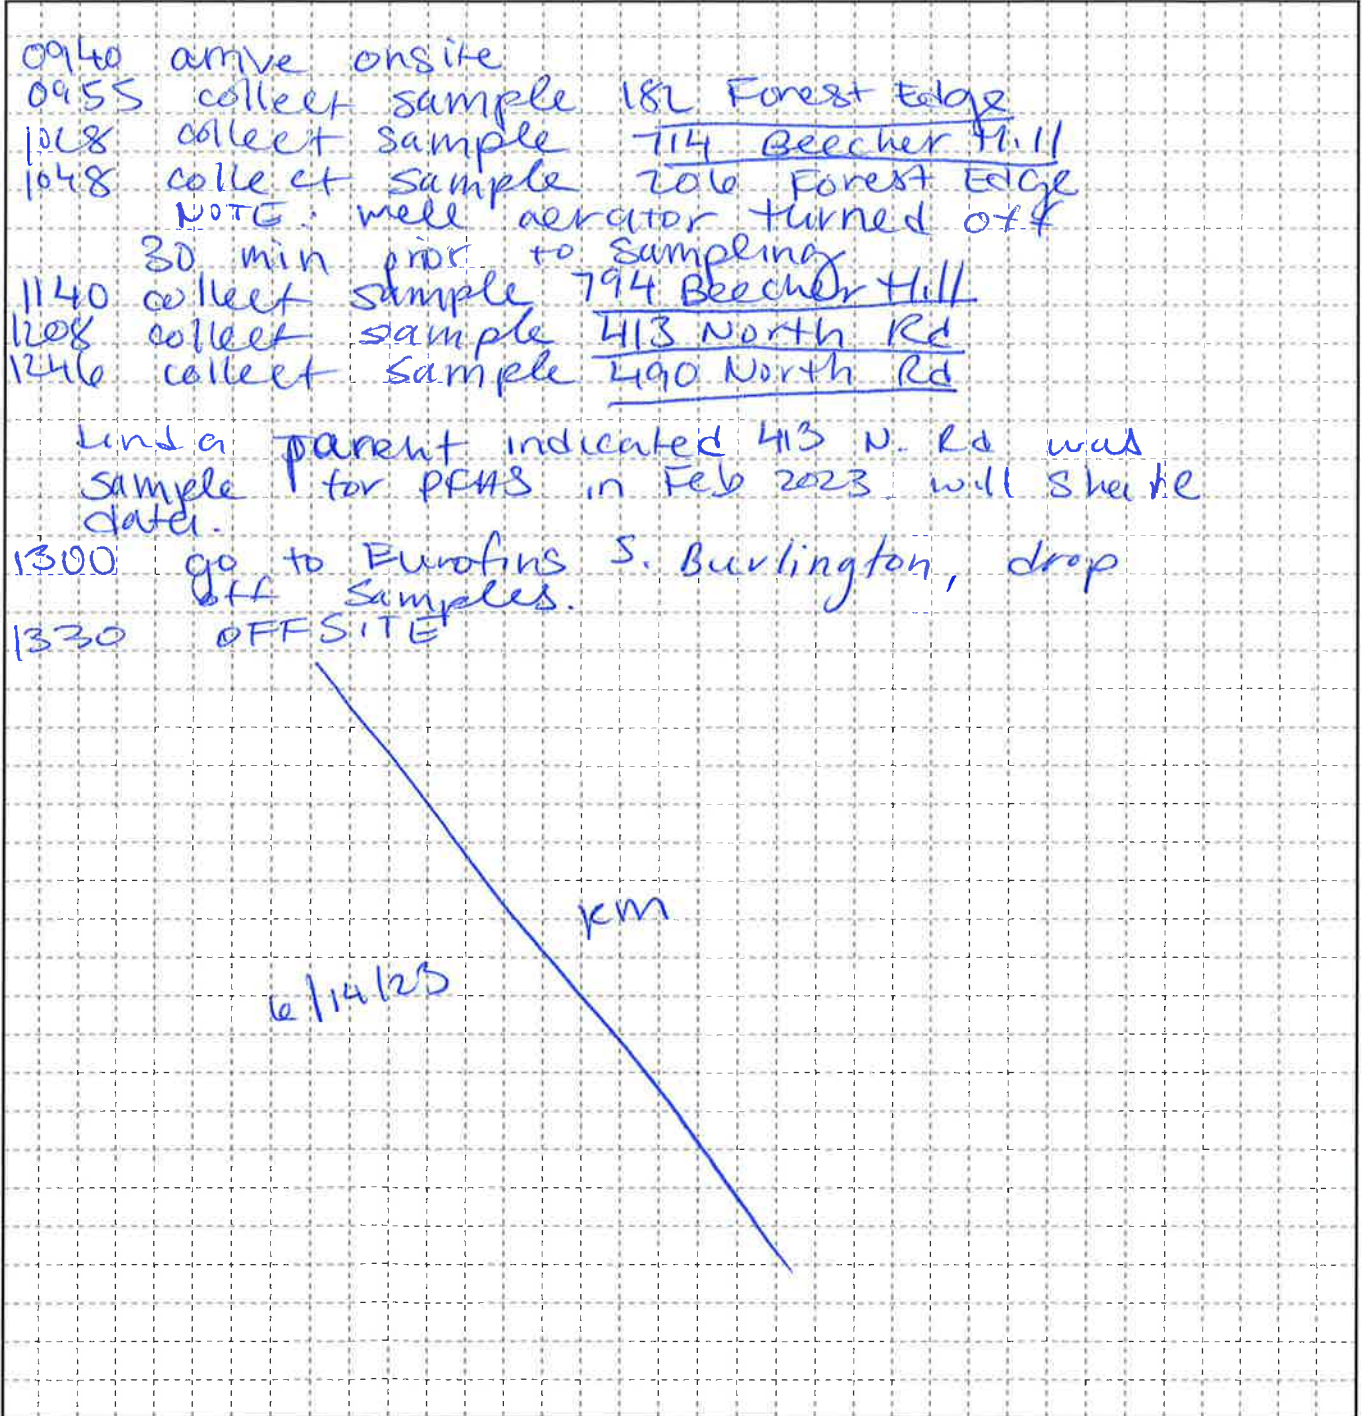 0940 arrive onsite
0955 collect sample 182 Forest Edge
1018 collect sample 714 Beecher Hill
1048 collect sample 206 Forest Edge
NOTE: well aerator turned off
30 min prior to sampling
1140 collect sample 794 Beecher Hill
1208 collect sample 413 North Rd
1246 collect sample 490 North Rd
Linda parent indicated 413 N. Rd was
sample for PFAS in Feb 2023. will share
data.
1300 go to Eurofins S. Burlington, drop
off samples.
1330 OFFSITE
KM
6/14/23